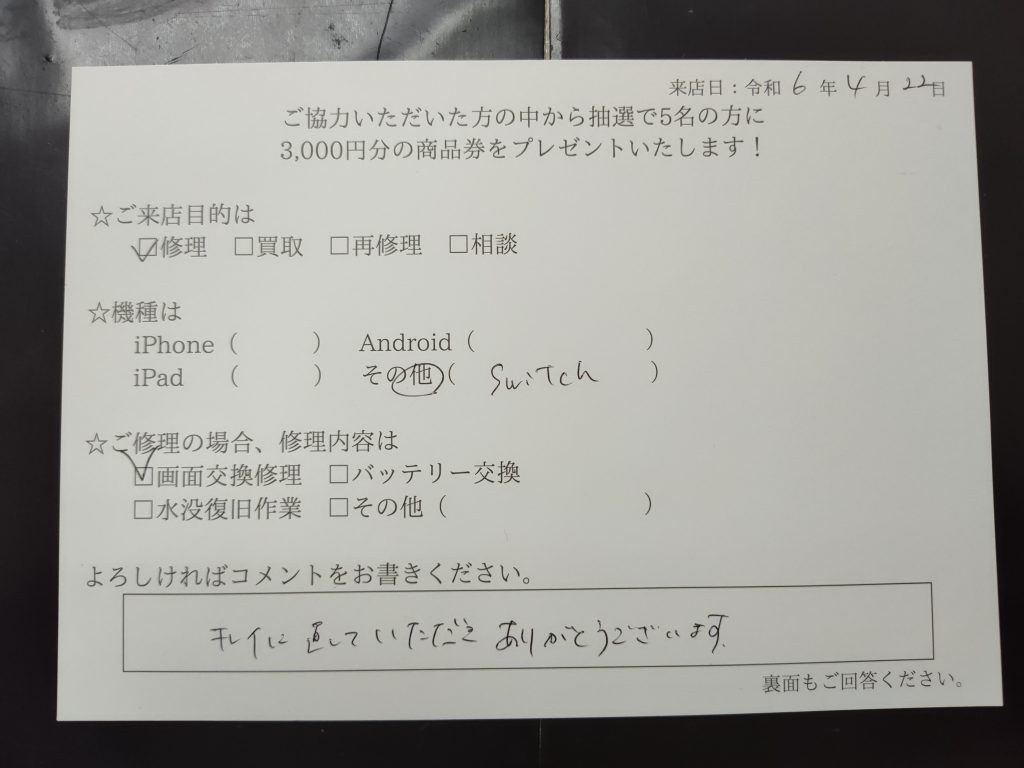 来店日：令和 6 年 4 月 22日
ご協力いただいた方の中から抽選で5名の方に
3,000円分の商品券をプレゼントいたします！
☆ご来店目的は
☑修理 □買取 □再修理 □相談
☆機種は
iPhone（　　　） Android（　　　　　　　）
iPad　（　　　） その他（ Switch ）
☆ご修理の場合、修理内容は
☑画面交換修理 □バッテリー交換
□水没復旧作業 □その他（　　　　　　　　）
よろしければコメントをお書きください。
キレイに直していただき ありがとうございます。
裏面もご回答ください。